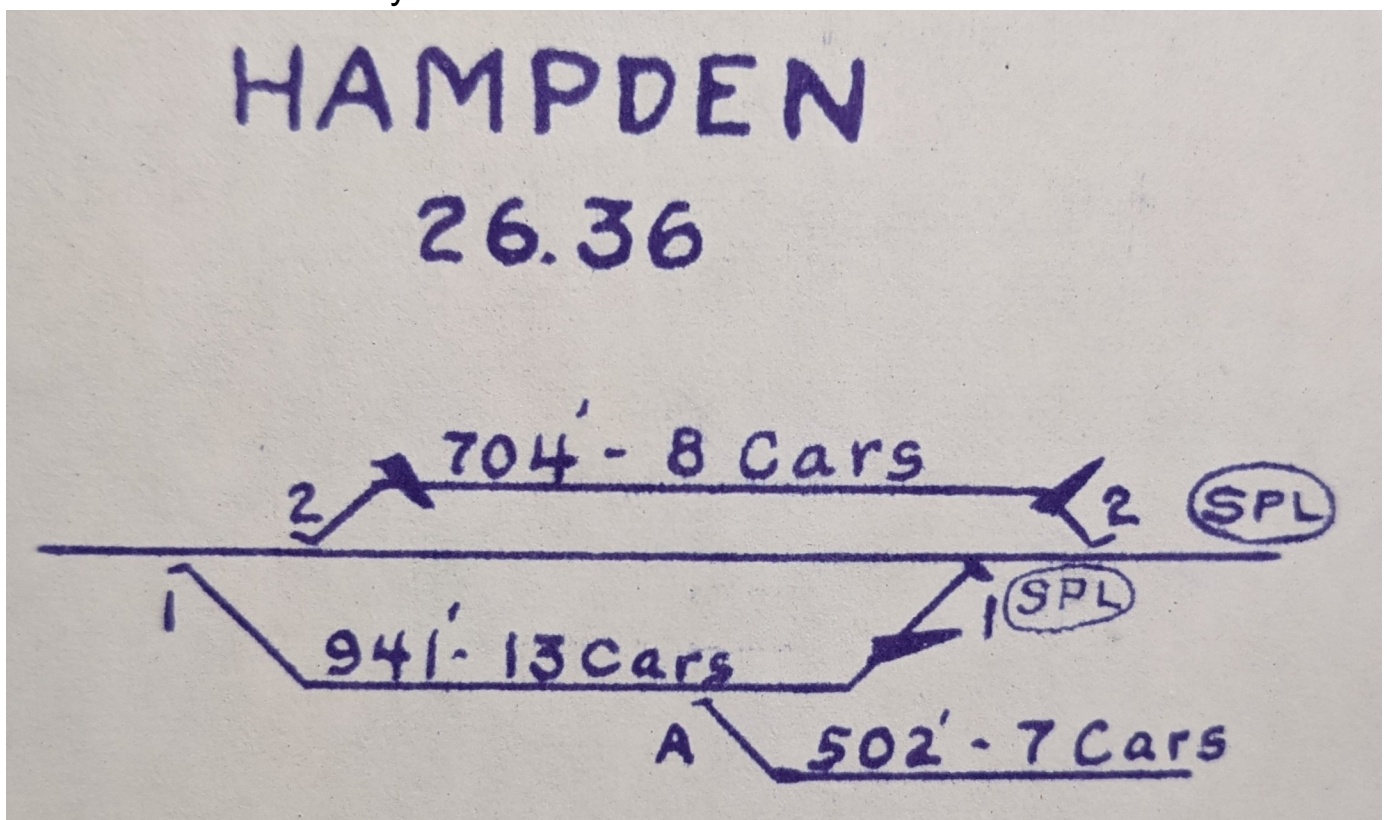 HAMPDEN
26.36
704' - 8 Cars
2
2
SPL
1
1
SPL
941' - 13 Cars
A
502' - 7 Cars